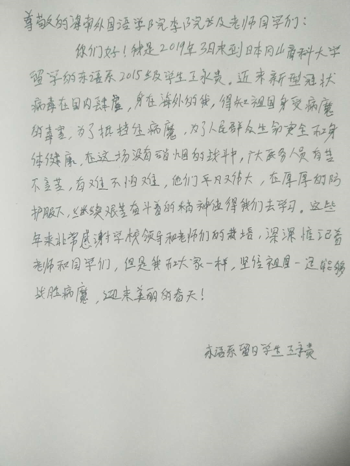 尊敬的海南外国语学院李院长及老师同学们：
你们好！我是2019年3月来到日本冈山商科大学
留学的东语系2015级学生王永英。近来新型冠状
病毒在国内肆虐，身在海外的我，得知祖国身受病魔
的毒害，为了抵挡住病魔，为了人民群众生命安全和身
体健康，在这场没有硝烟的战斗中，广大医务人员有苦
不言苦，有难不怕难，他们平凡又伟大，在厚厚的防
护服下，继续艰苦奋斗着的精神值得我们去学习。这些
年来非常感谢学校领导和老师们的栽培，深深惦记着
老师和同学们，但是我和大家一样，坚信祖国一定能够
战胜病魔，迎来美丽的春天！
东语系留日学生王永英